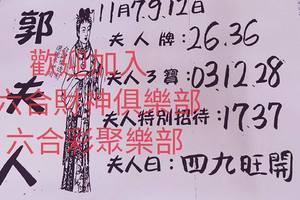 郭夫人
11月7.9.12日
夫人牌:26.36
夫人3寶:03.12.28
夫人特別招待:1737
夫人曰:四九旺開
歡迎加入
六合財神俱樂部
六合彩聚樂部